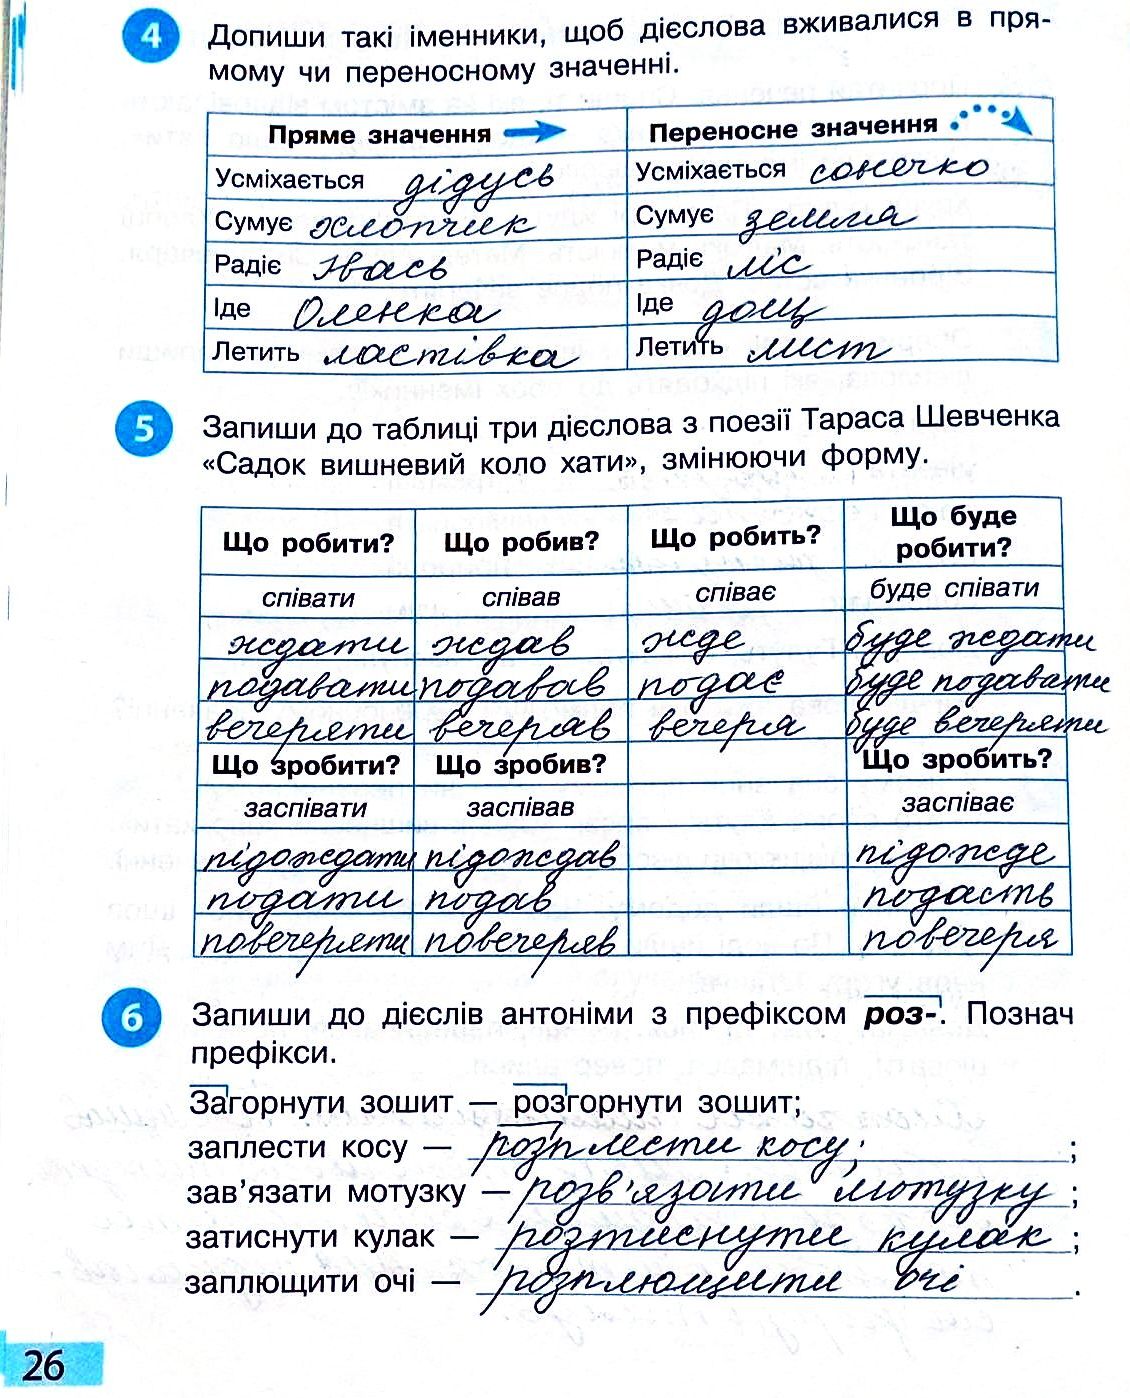 4 Допиши такі іменники, щоб дієслова вживалися в пря-
мому чи переносному значенні.
Пряме значення Переносне значення
Усміхається дідусь Усміхається сонечко
Сумує хлопчик Сумує земля
Радіє Івась Радіє ліс
Іде Оленка Іде дощ
Летить ластівка Летить лист
5 Запиши до таблиці три дієслова з поезії Тараса Шевченка
«Садок вишневий коло хати», змінюючи форму.
Що робити? Що робив? Що робить? Що буде робити?
співати співав співає буде співати
ждати ждав жде буде ждати
подавати подавав подає буде подавати
вечеряти вечеряв вечеря буде вечеряти
Що зробити? Що зробив? Що зробить?
заспівати заспівав заспіває
підождати підождав підожде
подати подав подасть
повечеряти повечеряв повечеря
6 Запиши до дієслів антоніми з префіксом роз-. Познач
префікси.
Загорнути зошит — розгорнути зошит;
заплести косу — розплести косу; ;
зав’язати мотузку — розв’язати мотузку ;
затиснути кулак — розтиснути кулак ;
заплющити очі — розплющити очі .
26